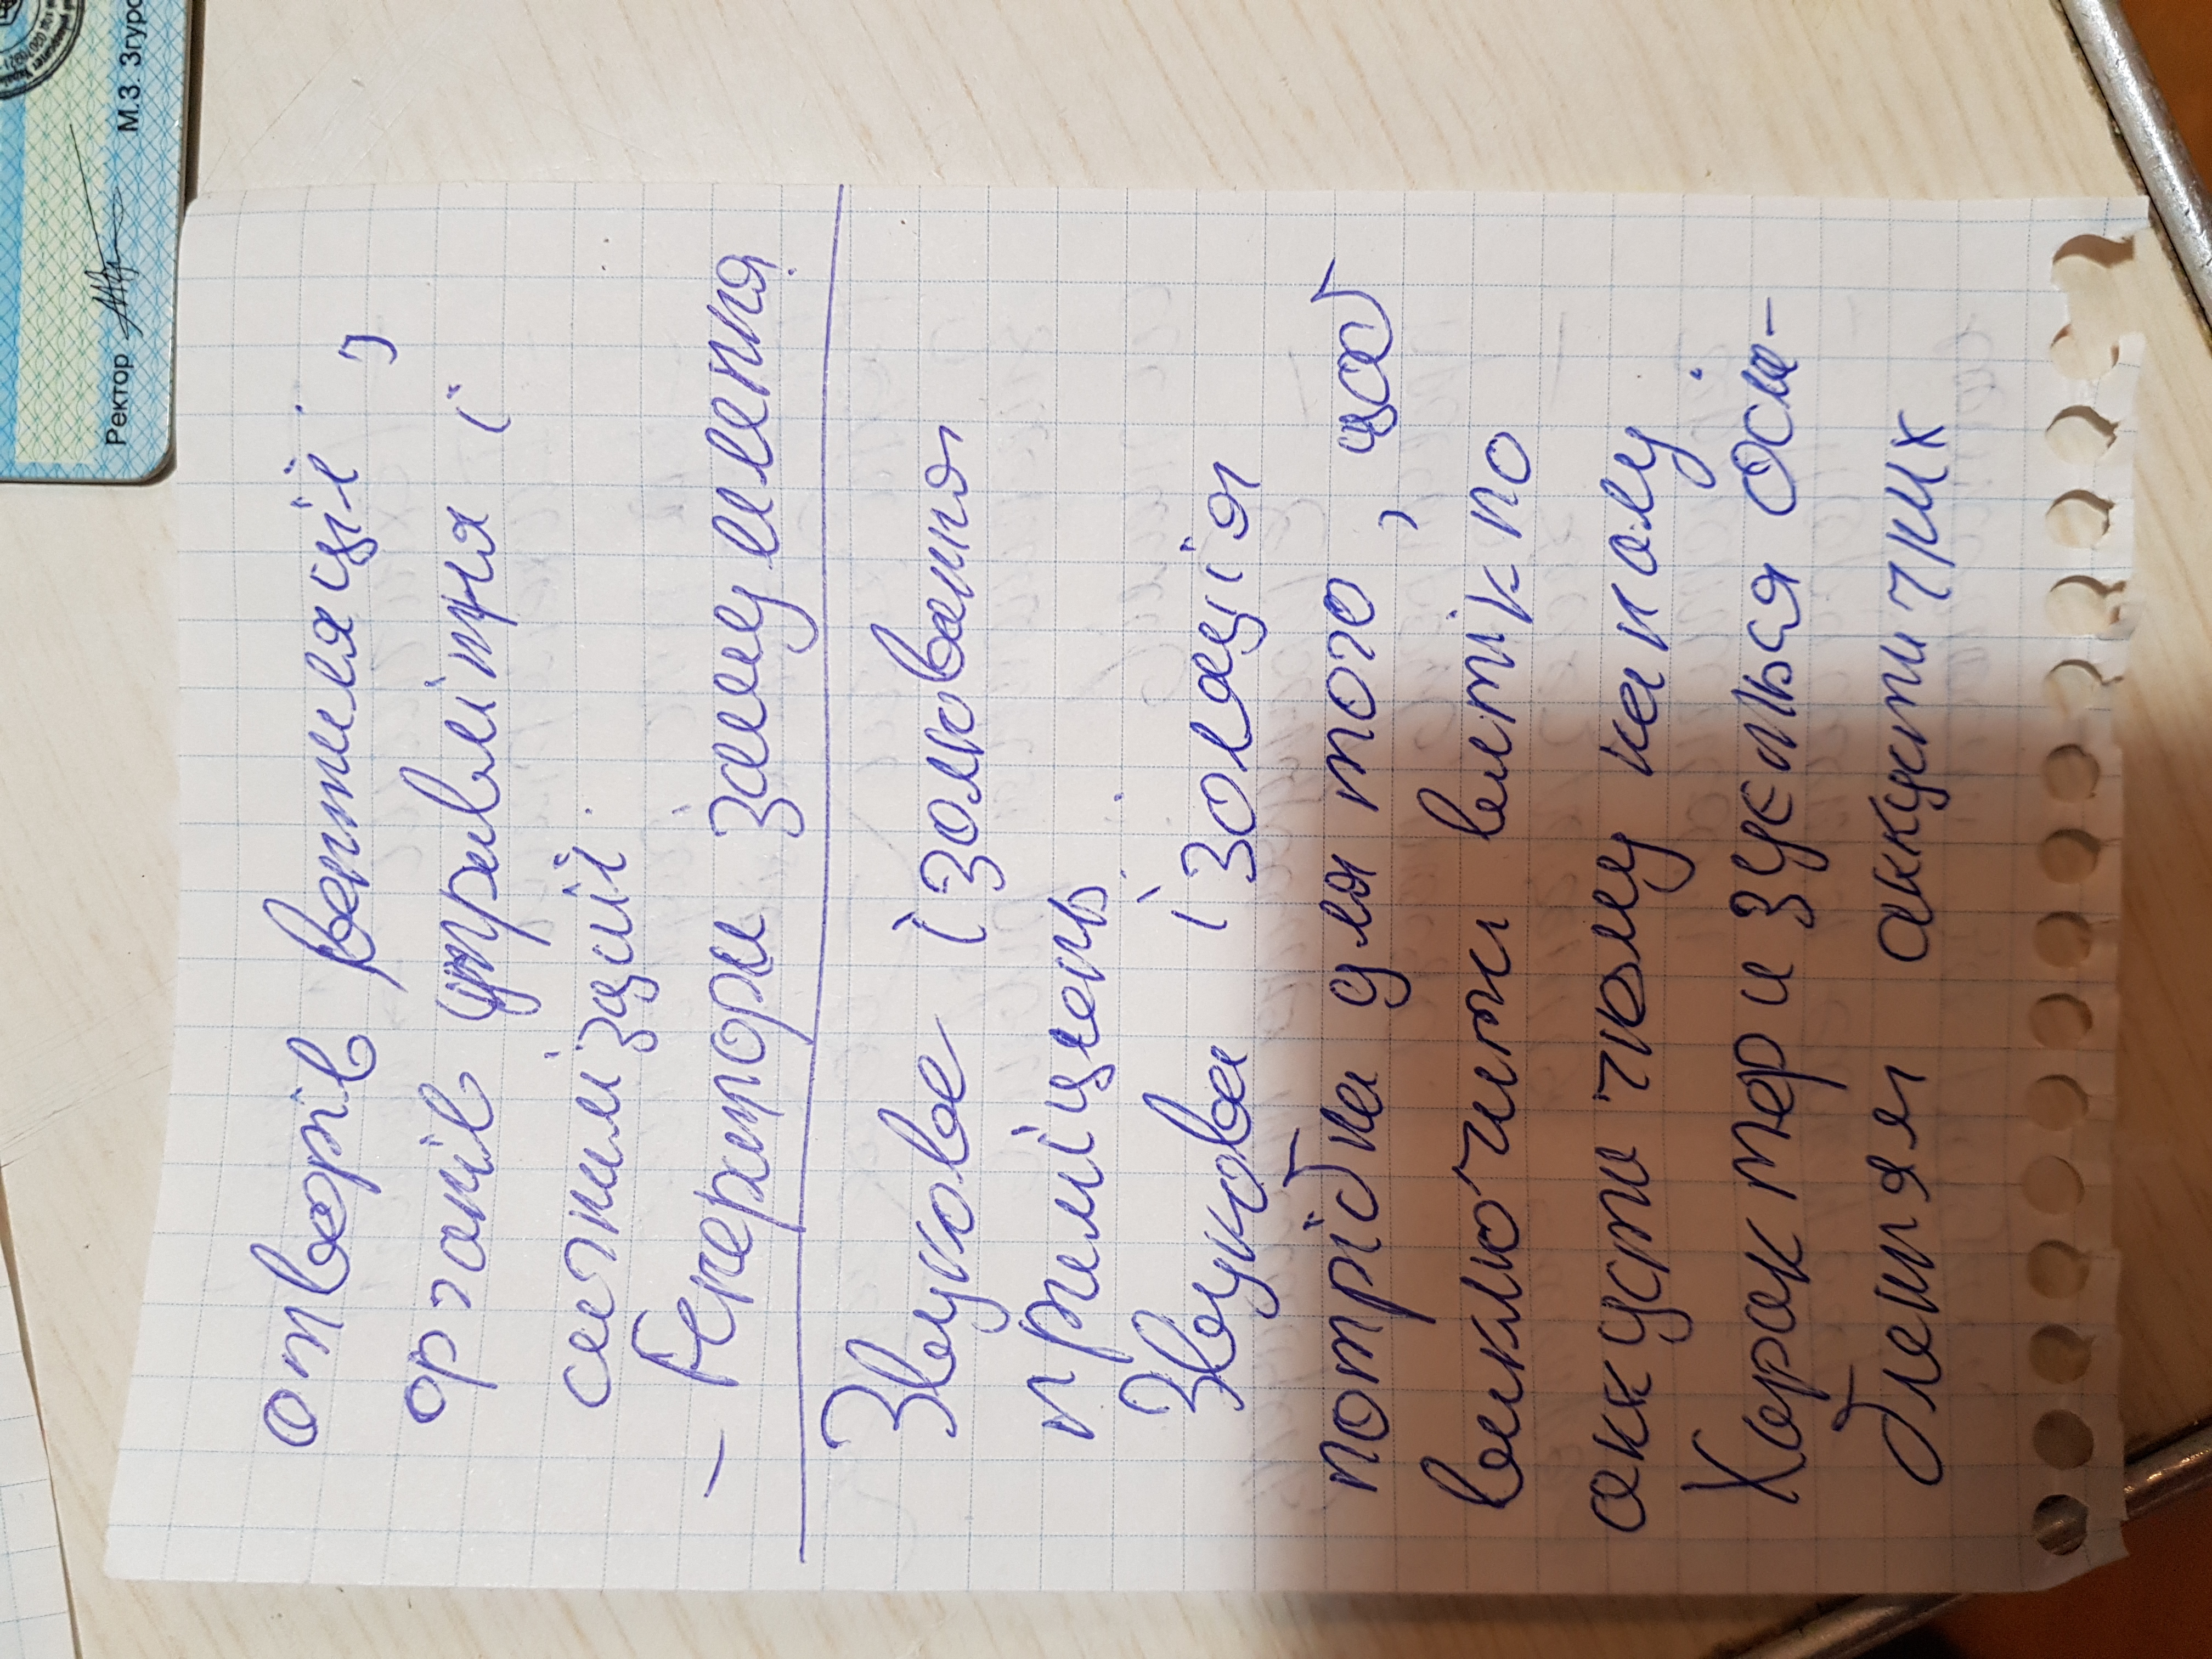 Ректор
М.З. Згуро
отворів вентиляції,
органів управління і
сигналізації.
- Генератори зашумлення.
Звукове ізолювання
приміщень.
Звукова ізоляція
потрібна для того, щоб
виключити витік по
аккустичному каналу.
Характеризується осла-
бленням аккустичних